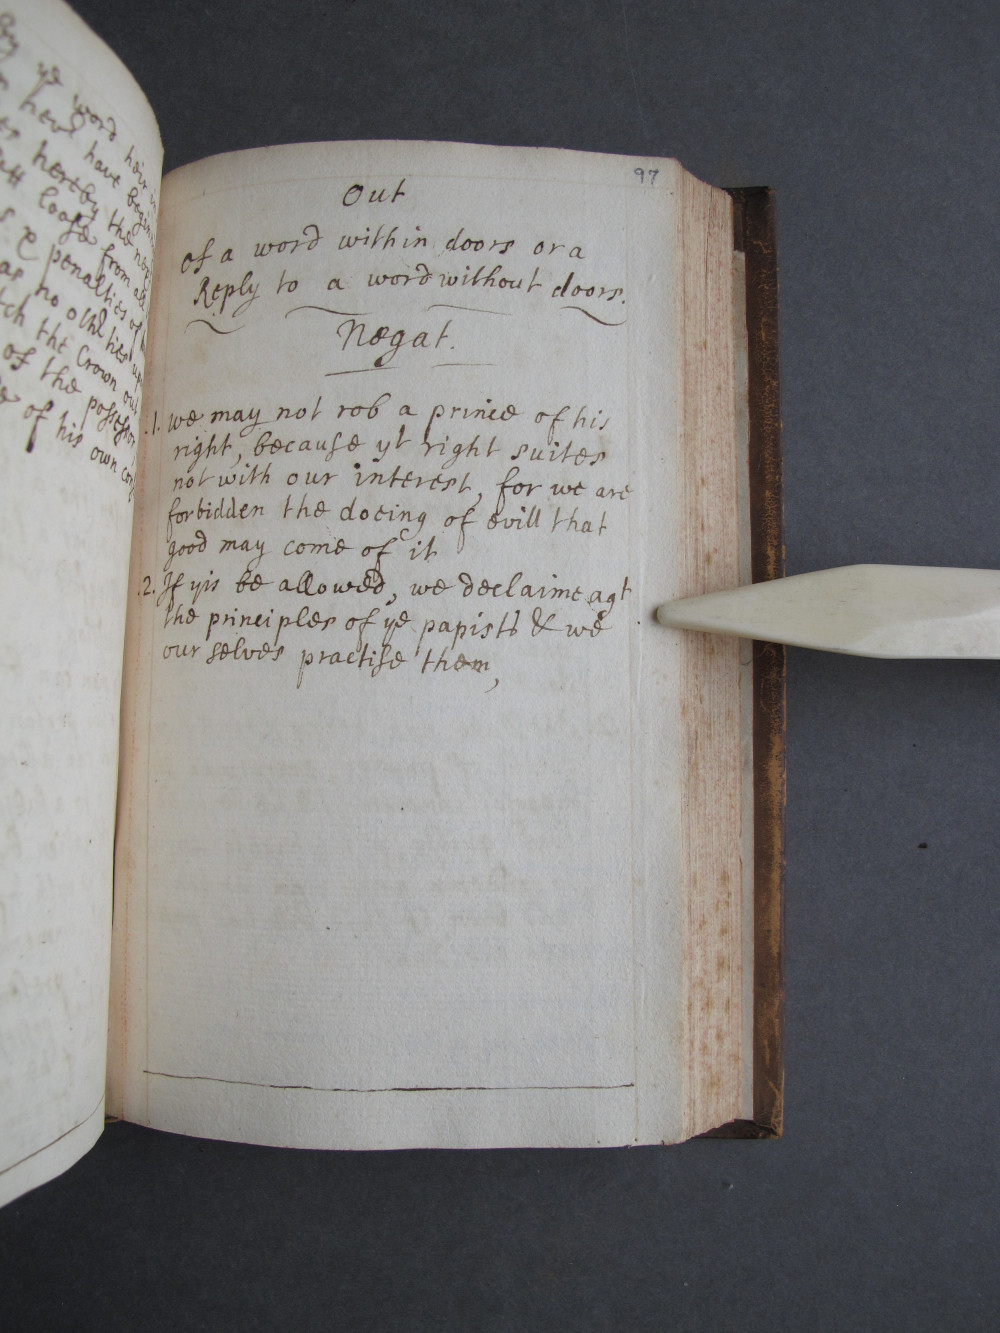 By ye word heir in
hers hereby the nex
loose from all
& penalties of
as no othr ties up
tch the Crown out
of the possessor
of his own cons
97
Out
Of a word within doors or a
Reply to a word without doors.
Negat.
.1. we may not rob a prince of his
right, because yt right suites
not with our interest, for we are
forbidden the doeing of evill that
good may come of it
.2. If yis be allowed, we declaime agt
the principles of ye papists & we
our selves practise them,